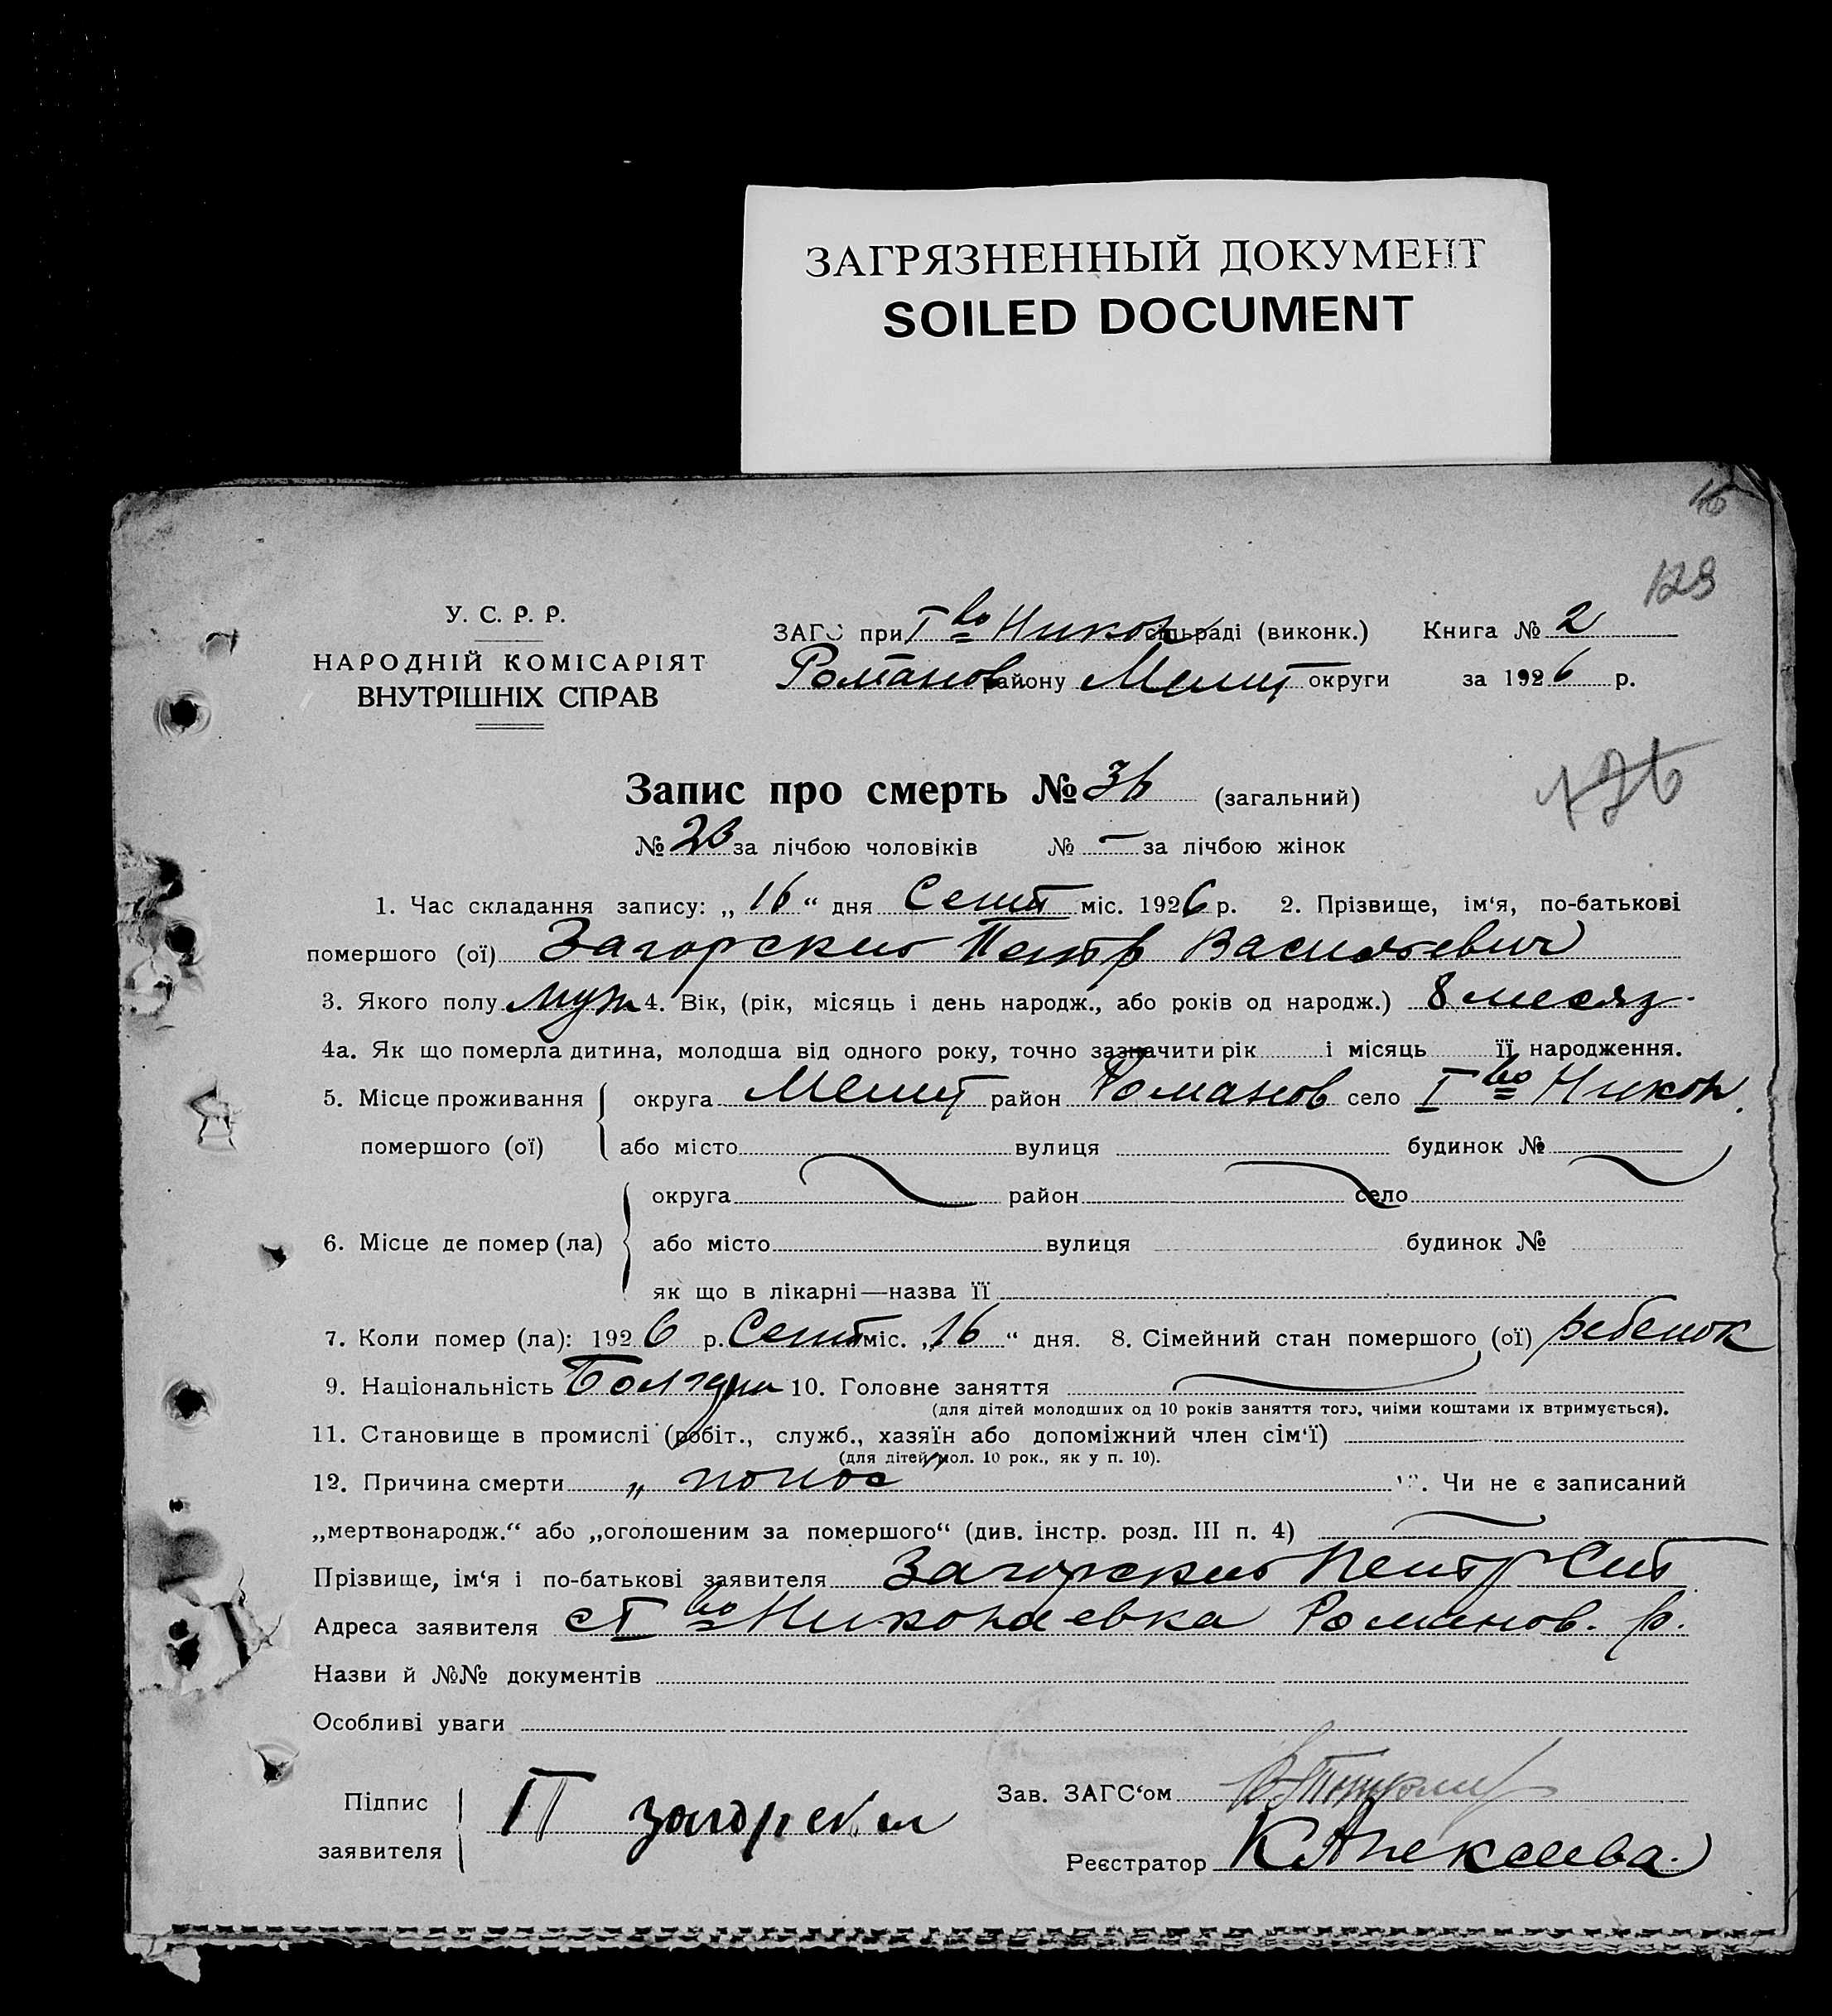 ЗАГРЯЗНЕННЫЙ ДОКУМЕНТ
SOILED DOCUMENT
16
128
У. С. Р. Р.
НАРОДНІЙ КОМІСАРІЯТ
ВНУТРІШНІХ СПРАВ
ЗАГС при І во Никол сільраді (виконк.) Книга № 2
Романов району Мелит округи за 1926 р.
Запис про смерть № 36 (загальний)
126
№ 23 за лічбою чоловіків № — за лічбою жінок
1. Час складання запису: „16“ дня Сент міс. 1926 р. 2. Прізвище, ім‘я, по-батькові
помершого (ої) Загорский Петр Васильевич
3. Якого полу муж 4. Вік, (рік, місяць і день народж., або років од народж.) 8 месяц.
4а. Як що померла дитина, молодша від одного року, точно зазначити рік і місяць її народження.
5. Місце проживання округа Мелит район Романов село І во Никол.
помершого (ої) або місто вулиця будинок №
округа район село
6. Місце де помер (ла) або місто вулиця будинок №
як що в лікарні—назва її
7. Коли помер (ла): 1926 р. Сент міс. „16“ дня. 8. Сімейний стан помершого (ої) ребенок
9. Національність Болгари 10. Головне заняття
(для дітей молодших од 10 років заняття того, чиїми коштами їх втримується).
11. Становище в промислі (робіт., служб., хазяїн або допоміжний член сім‘ї)
(для дітей мол. 10 рок., як у п. 10).
12. Причина смерти „ понос “ . Чи не є записаний
„мертвонародж.“ або „оголошеним за помершого“ (див. інстр. розд. III п. 4)
Прізвище, ім‘я і по-батькові заявителя Загорский Петр
Адреса заявителя с І во Николаевка Романов. р.
Назви й №№ документів
Особливі уваги
Підпис
заявителя П загорский
Зав. ЗАГС‘ом
Реєстратор К Алексеева.